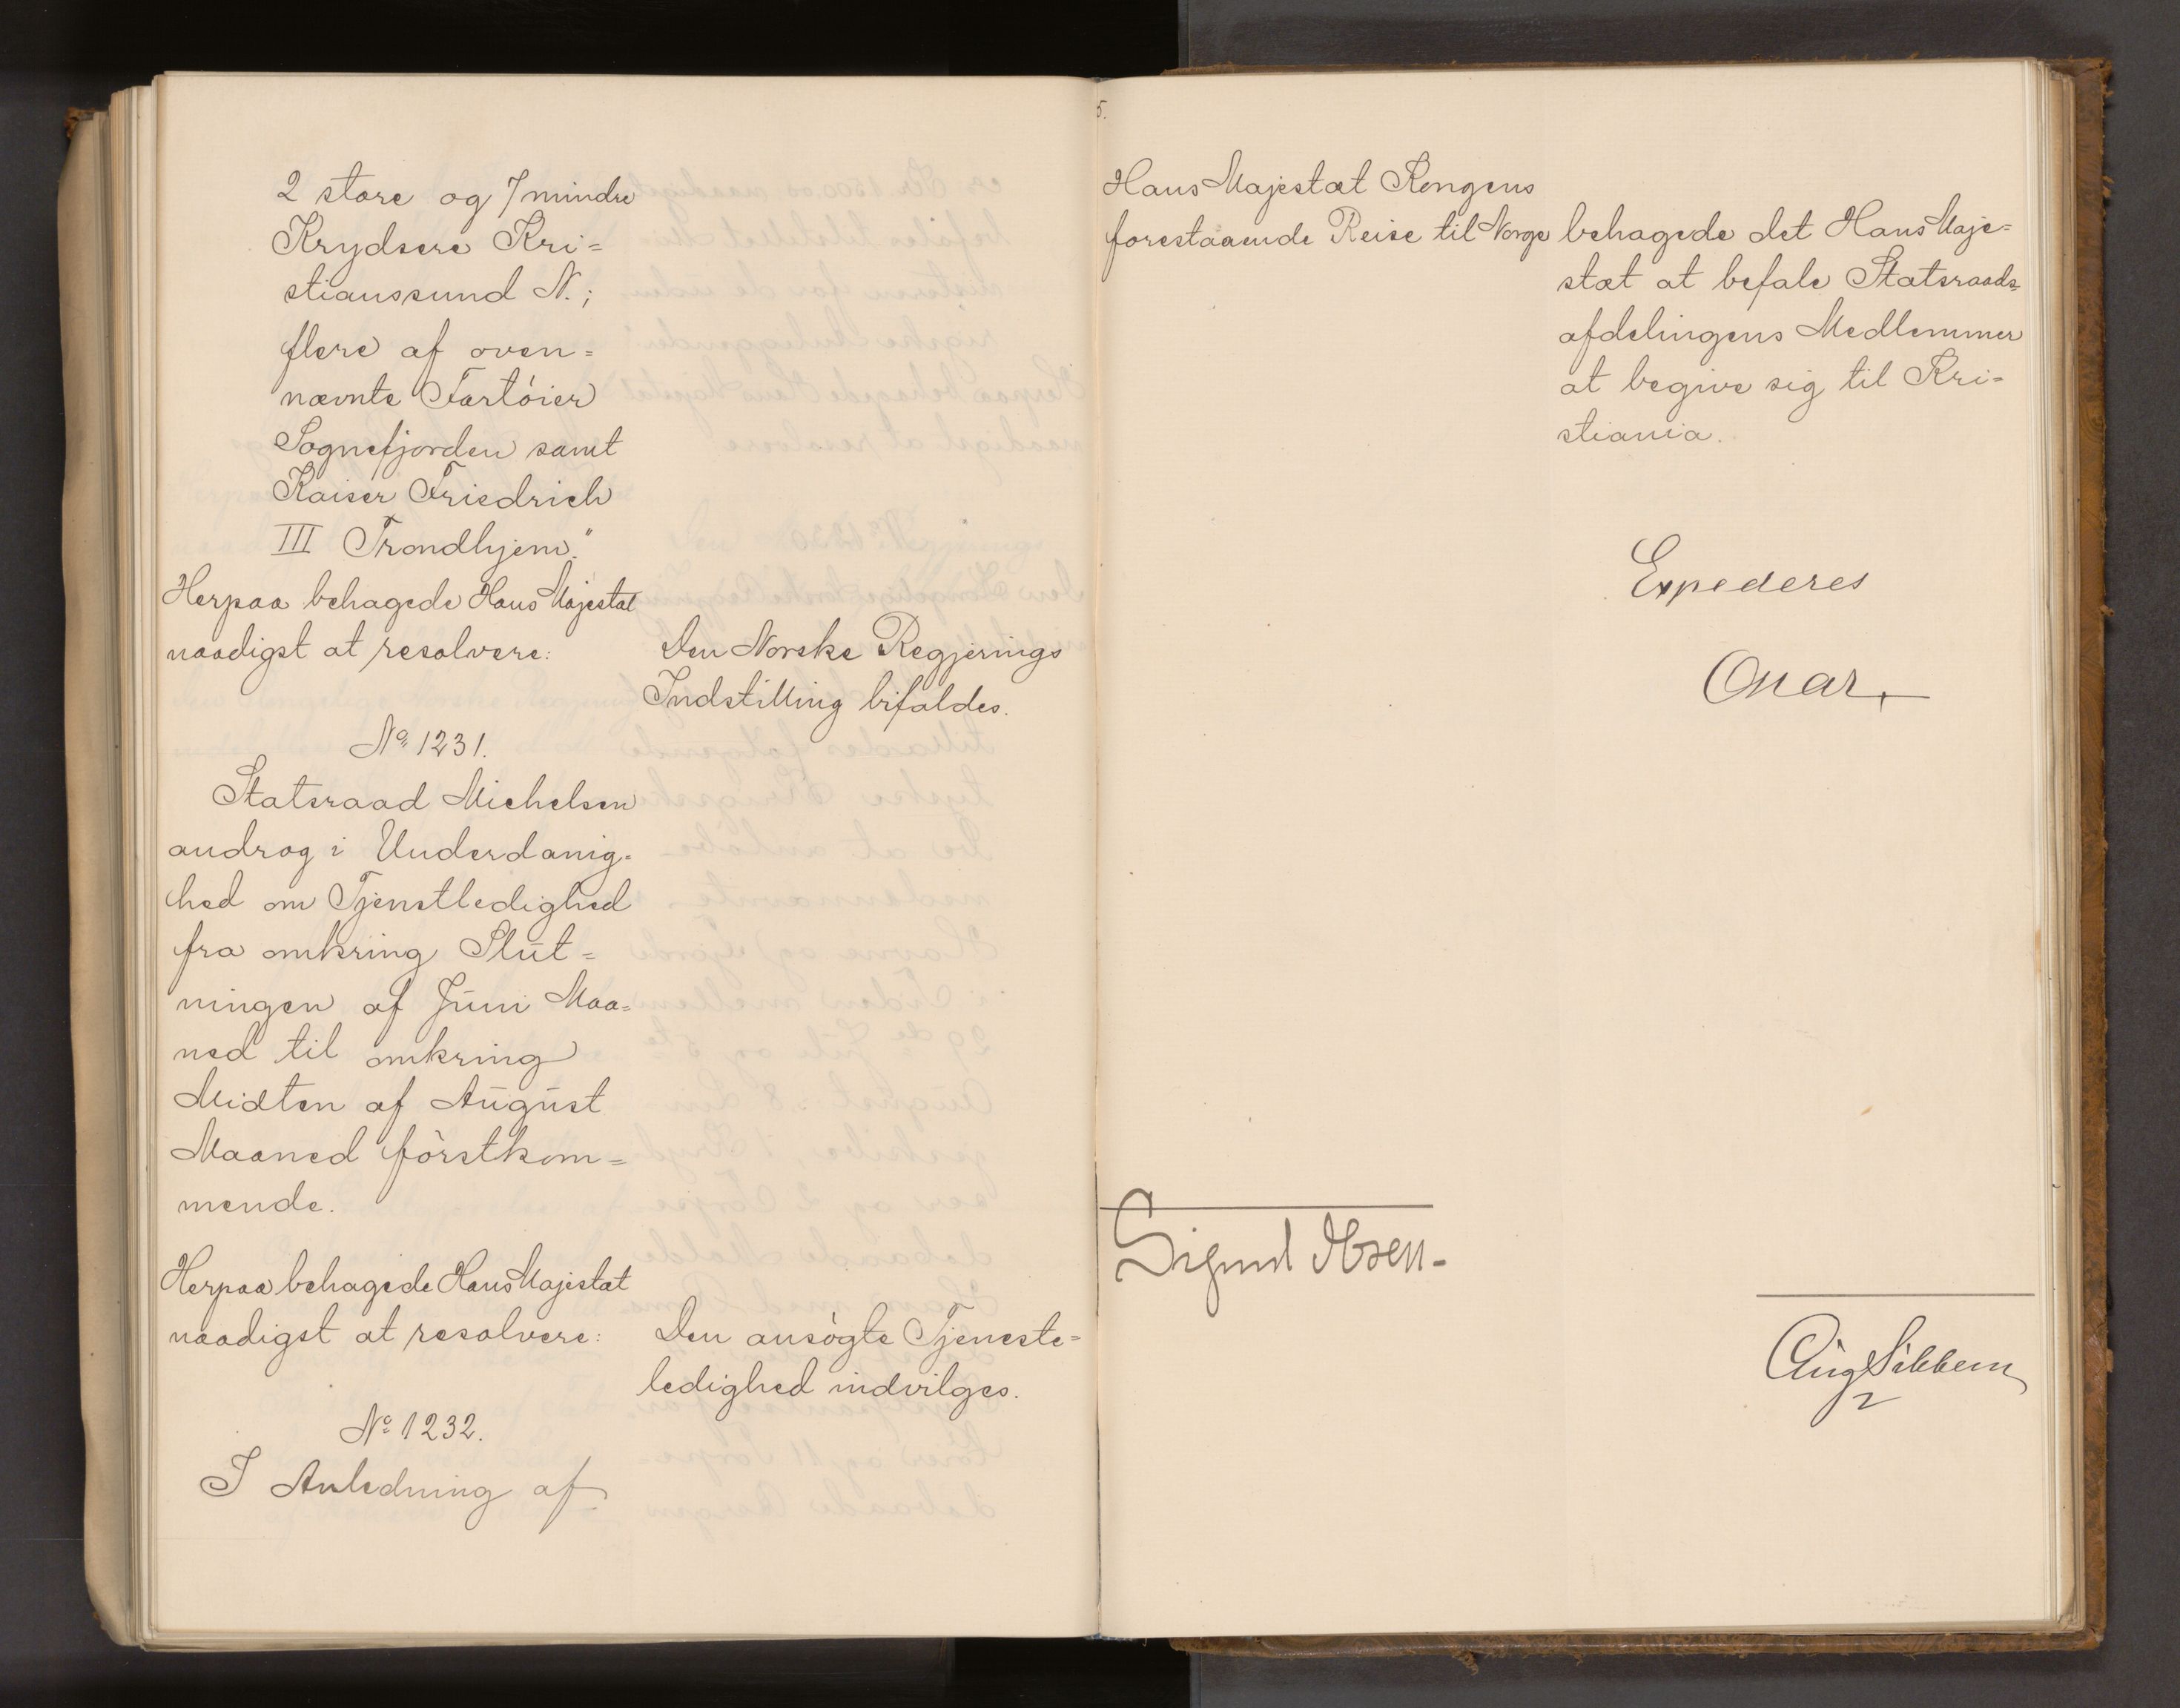 2 store og 7 mindre
Krydsere Kri=
stianssund N.;
flere af oven=
nævnte Fartöier
Sognefjorden samt
Kaiser Friedrich
III Trondhjem."
Herpaa behagede Hans Majestæt
naadigst at resolvere:
Den Norske Regjerings
Indstilling bifaldes.
No 1231.
Statsraad Michelsen
androg i Underdanig=
hed om Tjenstledighed
fra omkring Slut=
ningen af Juni Maa=
ned til omkring
Midten af August
Maaned förstkom=
mende.
Herpaa behagede Hans Majestæt
naadigst at resolvere:
Den ansögte Tjeneste=
ledighed indvilges.
No 1232.
I Anledning af
5.
Hans Majestæt Kongens
forestaaende Reise til Norge
behagede det Hans Maje=
stæt at befale Statsraads=
afdelingens Medlemmer
at begive sig til Kri=
stiania.
Expederes
Oscar
Sigurd Ibsen
Aug Sibbern